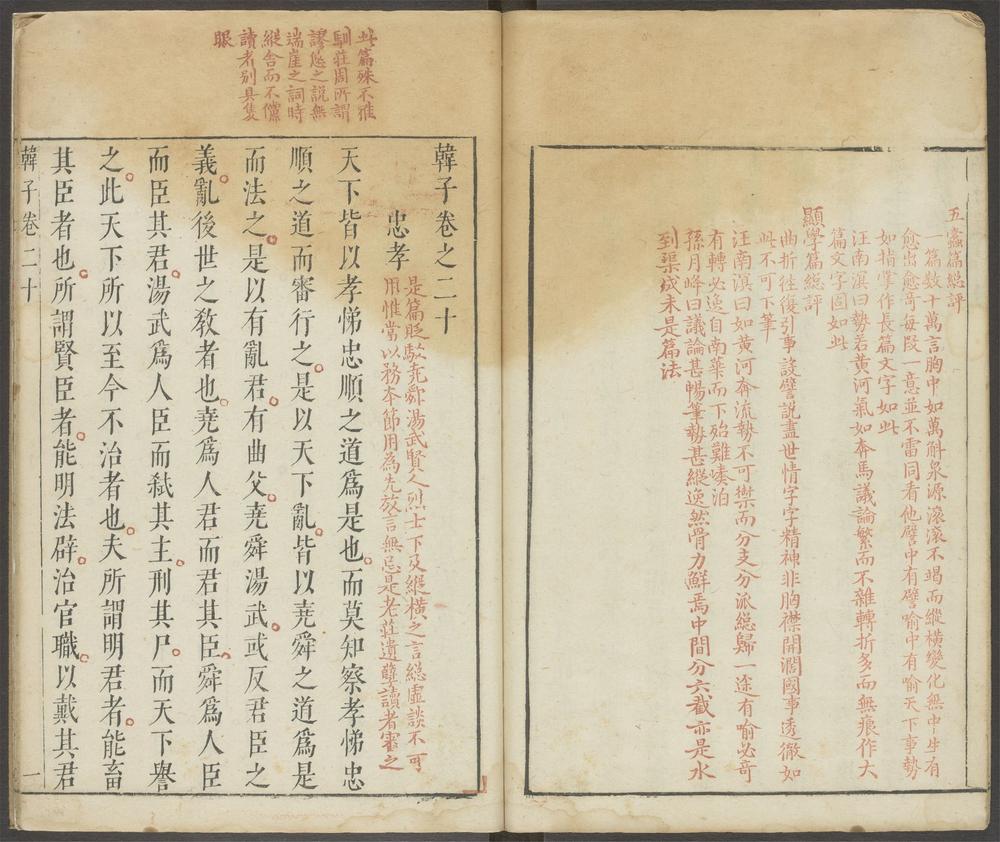 五蠹篇總評
一篇數十萬言胸中如萬斛泉源滚滚不竭而縱橫變化無中生有
愈出愈竒每段一意並不雷同看他譬中有譬喻中有喻天下事勢
如指掌作長篇文字如此
汪南溟曰勢若黄河氣如奔馬議論繁而不雜轉折多而無痕作大
篇文字固如此
顯學篇總評
曲折往復引事設譬説盡世情字字精神非胸襟開濶國事透徹如
此不可下筆
汪南溟曰如黄河奔流勢不可禦而分支分派總歸一途有喻必竒
有轉必逸自南華而下殆難嗹泊
孫月峰曰議論甚暢筆勢甚縱逸然骨力鮮焉中間分六截亦是水
到渠成未是篇法
此篇殊不雅
馴莊周所謂
謬悠之説無
端崖之詞時
縱舍而不儻
讀者别具隻
眼
韓子卷之二十
忠孝
是篇貶駁堯舜湯武賢人烈士下及縱橫之言總虚談不可
用惟當以務本節用為先放言無忌是老莊遺孽讀者審之
天下皆以孝悌忠順之道爲是也而莫知察孝悌忠
順之道而審行之是以天下亂皆以堯舜之道爲是
而法之是以有亂君有曲父堯舜湯武或反君臣之
義亂後世之敎者也堯爲人君而君其臣舜爲人臣
而臣其君湯武爲人臣而弑其主刑其尸而天下譽
之此天下所以至今不治者也夫所謂明君者能畜
其臣者也所謂賢臣者能明法辟治官職以戴其君
韓子卷二十
一